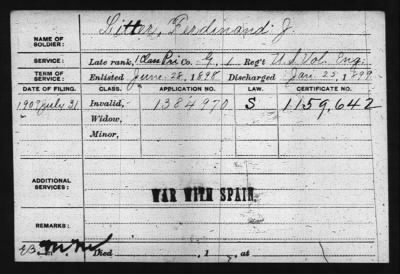 NAME OF SOLDIER: Litter, Ferdinand J.
SERVICE: Late rank, 1 Class Pri Co. G, 1 Reg't U.S. Vol. Eng.
TERM OF SERVICE: Enlisted June 28, 1898 Discharged Jan. 25, 1899
DATE OF FILING. CLASS. APPLICATION NO. LAW. CERTIFICATE NO.
1907 July 31 Invalid, 1384970 S 1159,642
Widow,
Minor,
ADDITIONAL SERVICES:
WAR WITH SPAIN.
REMARKS:
Died , 1 , at